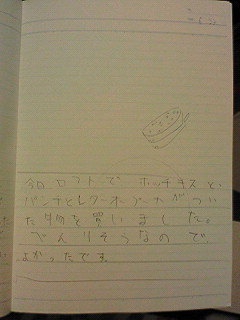 今日ロフトで ホッチキスと
パンチとレターオープナーがつい
た物を買いました。
べんりそうなので
よかったです。